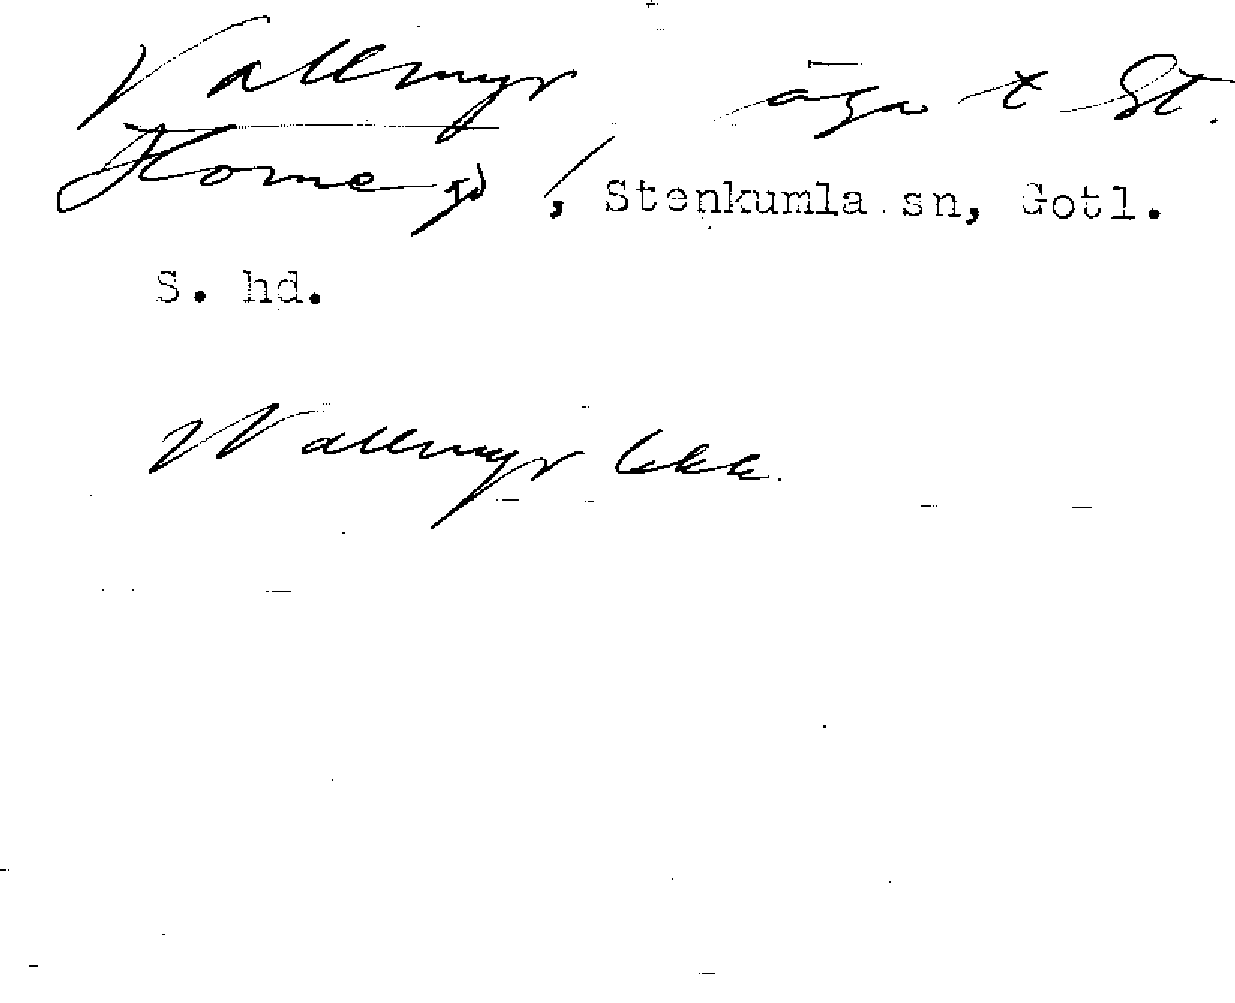 Vallmyr äga t St.
Home gd, Stenkumla sn, Gotl.
S. hd.
Wallmyr Ekk.